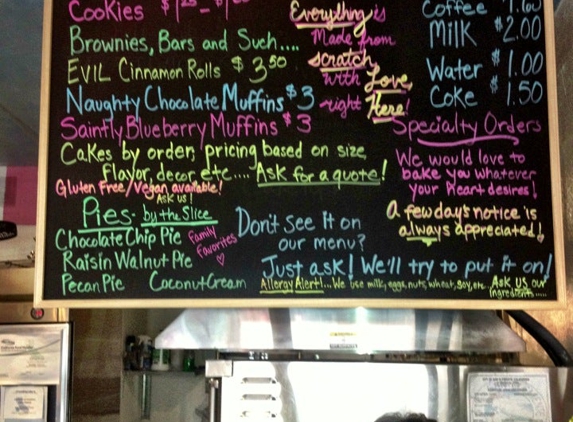 Cookies
Brownies, Bars and Such....
EVIL Cinnamon Rolls $3.50
Naughty Chocolate Muffins $3
Saintly Blueberry Muffins $3
Cakes by order, pricing based on size,
flavor, decor etc.... Ask for a quote!
Gluten Free/Vegan available!
Ask us!
Everything is
Made from
scratch
with Love,
right Here!
Coffee
Milk $2.00
Water $1.00
Coke $1.50
Specialty Orders
We would love to
bake you whatever
your heart desires!
A few days notice is
always appreciated!
Pies - by the Slice
Chocolate Chip Pie
Raisin Walnut Pie
Pecan Pie Coconut Cream
Family
Favorites
Don't see it on
our menu?
Just ask! We'll try to put it on!
Allergy Alert!... We use milk, eggs, nuts, wheat, soy, etc. Ask us our
ingredients.....